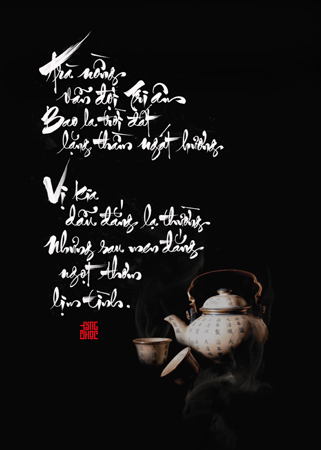 Trà nồng
vẫn đợi tri âm
Bao la trời đất
lặng thầm ngát hương
Vị kia
dẫu đắng lạ thường
Nhưng sau men đắng
ngọt thơm
lịm tình.